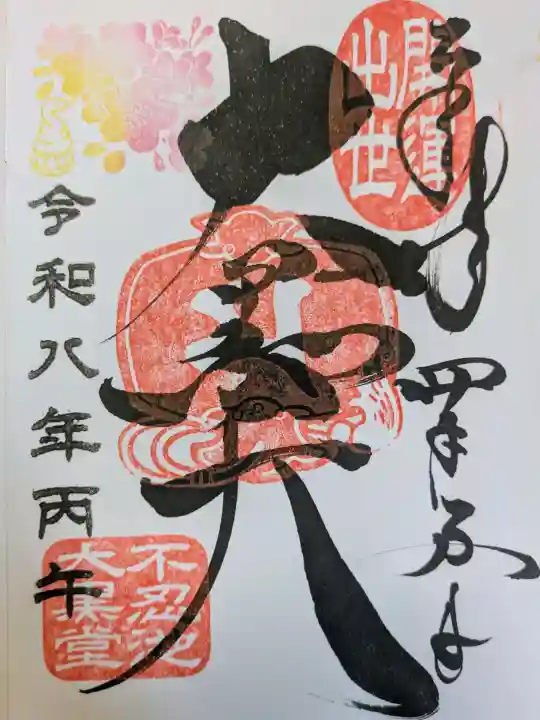 開運
出世
大黒天
令和八年丙午
不忍池
大黒堂